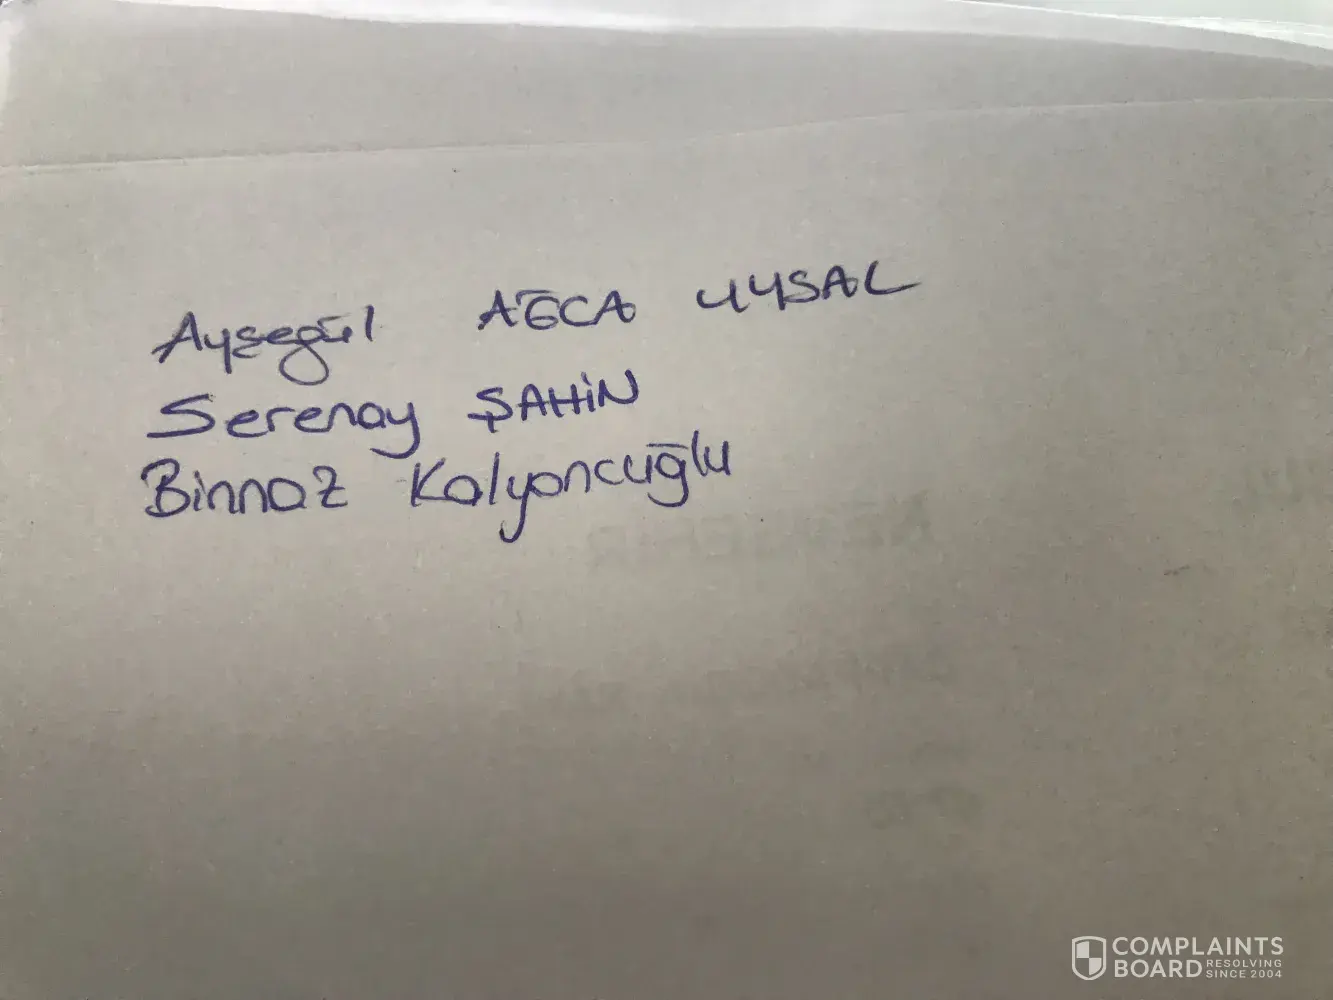 Ayşegül AĞCA UYSAL
Serenay ŞAHİN
Binnaz Kalyoncuğlu
COMPLAINTS
BOARD RESOLVING
SINCE 2004